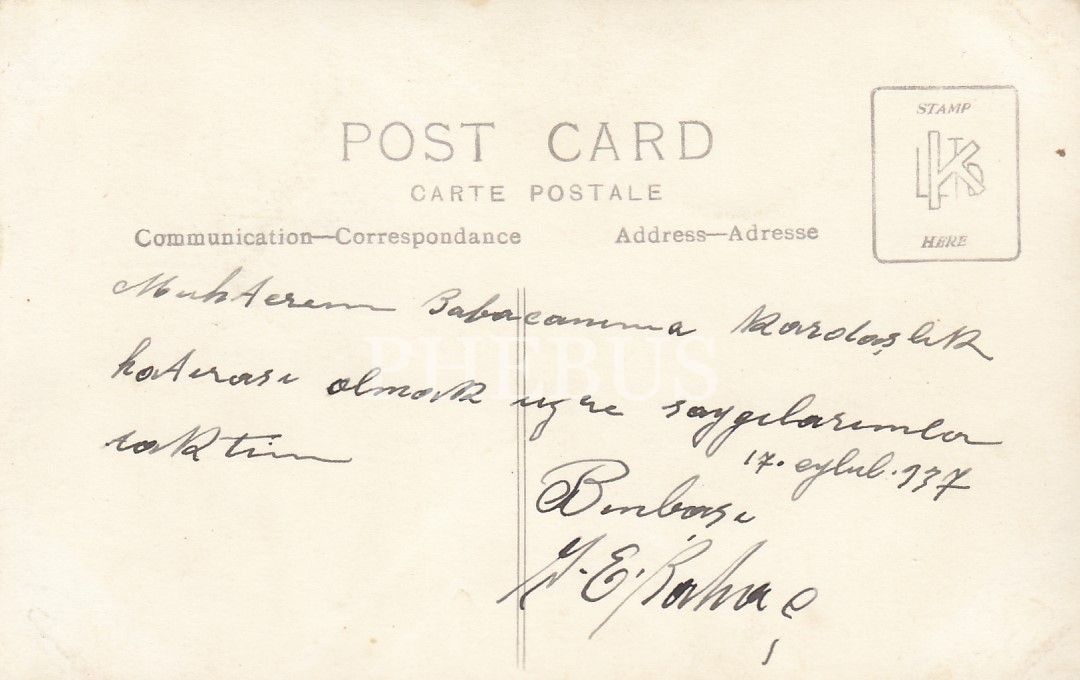 POST CARD
CARTE POSTALE
STAMP
HERE
Communication—Correspondance
Address—Adresse
Muhterem Babacanıma Kardaşlık
hatırası olmak uzre saygılarımla
taktim
17. eylul. 937
Binbaşı
PHEBUS